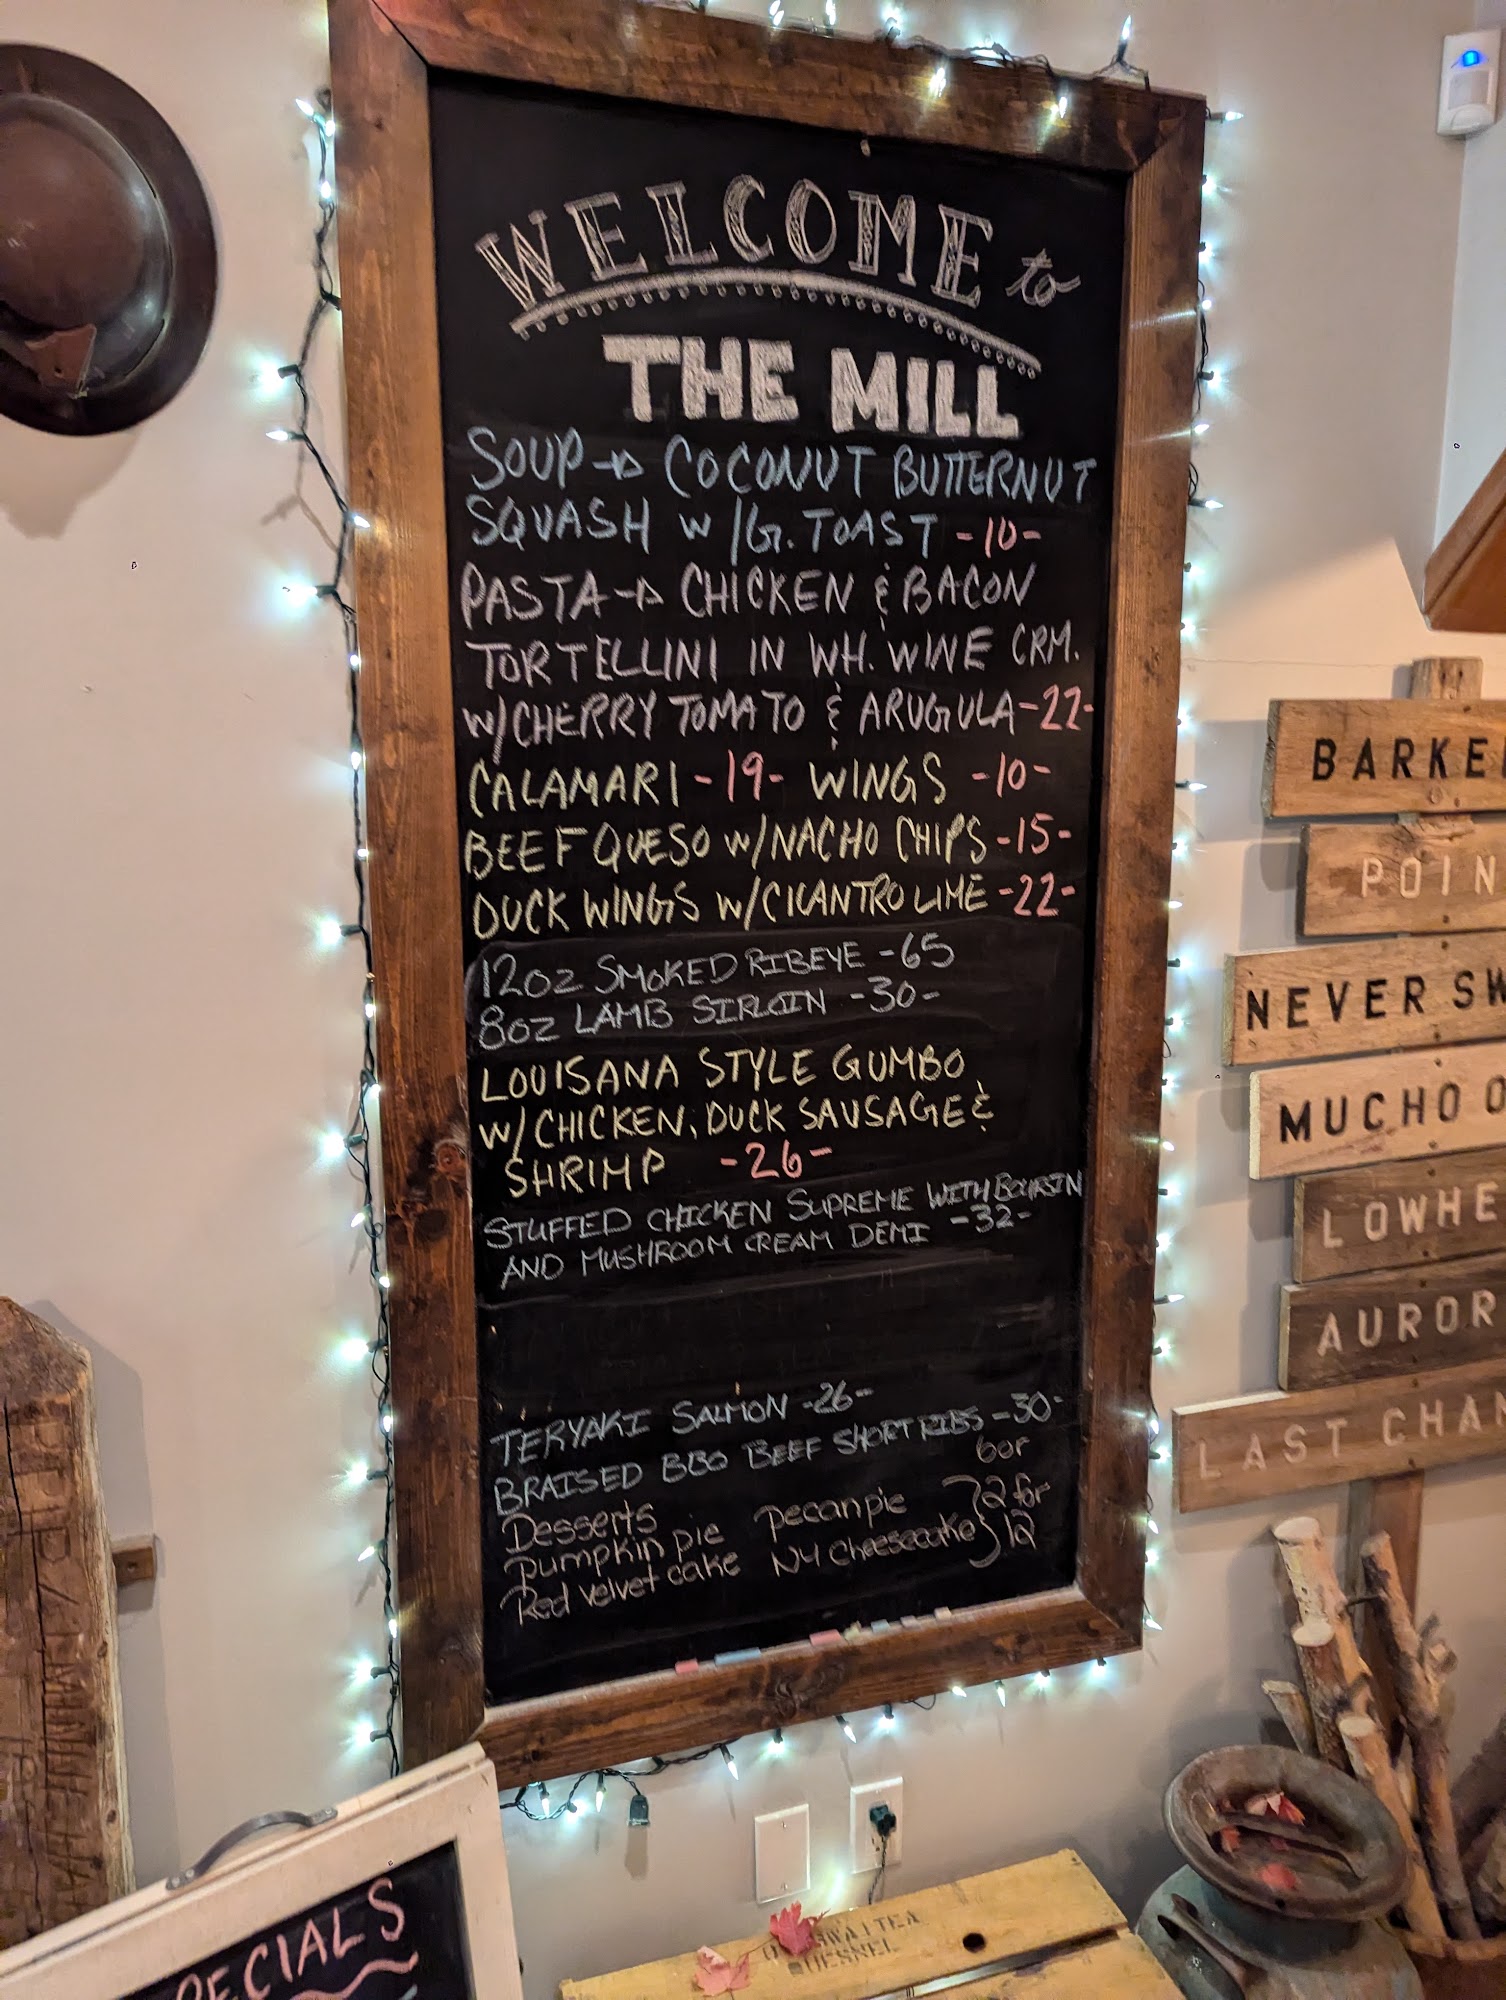 WELCOME to
THE MILL
SOUP → COCONUT BUTTERNUT
SQUASH W/G. TOAST -10-
PASTA → CHICKEN & BACON
TORTELLINI IN WH. WINE CRM.
W/CHERRY TOMATO & ARUGULA -22-
CALAMARI -19- WINGS -10-
BEEF QUESO W/NACHO CHIPS -15-
DUCK WINGS W/CILANTRO LIME -22-
12OZ SMOKED RIBEYE -65
8OZ LAMB SIRLOIN -30-
LOUISANA STYLE GUMBO
W/CHICKEN, DUCK SAUSAGE &
SHRIMP -26-
STUFFED CHICKEN SUPREME WITH BOURSIN
AND MUSHROOM CREAM DEMI -32-
TERYAKI SALMON -26-
BRAISED BBQ BEEF SHORT RIBS -30-
Desserts 6or
pumpkin pie pecan pie 2 for
Red velvet cake NY cheesecake 12
BARKE
POIN
NEVER SW
MUCHO O
LOWHE
AUROR
LAST CHAN
PECIALS
QUESNEL